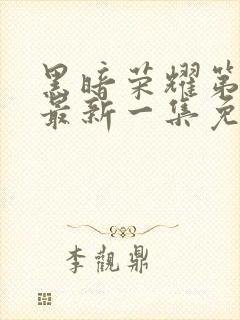 黑暗荣耀第
最新一集免
李觀鼎